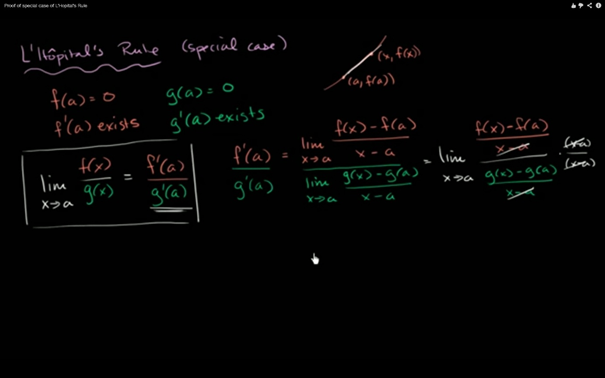 Proof of special case of L'Hopital's Rule
L'Hôpital's Rule (special case)
(x, f(x))
(a, f(a))
f(a) = 0 g(a) = 0
f'(a) exists g'(a) exists
lim x→a f(x)/g(x) = f'(a)/g'(a)
f'(a)/g'(a) = (lim x→a (f(x) - f(a))/(x - a))/(lim x→a (g(x) - g(a))/(x - a)) = lim x→a ((f(x) - f(a))/(x - a))/((g(x) - g(a))/(x - a)) · (x-a)/(x-a)